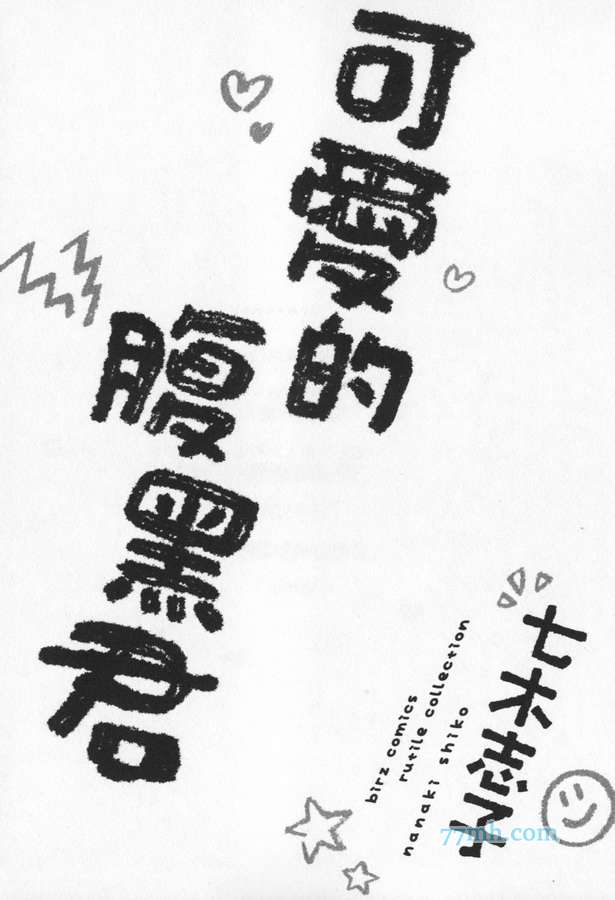 可愛的
腹黑君
birz comics
rutile collection
nanaki shiko
77mh.com